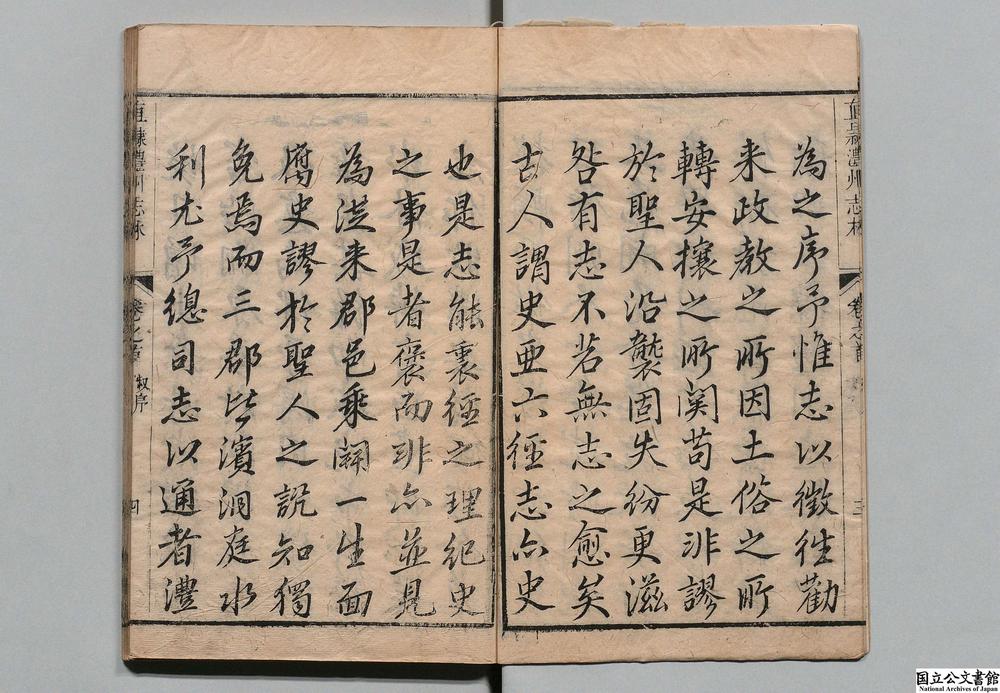 為之序予惟志以徵往勸
来政教之所因土俗之所
轉安攘之所関苟是非謬
於聖人沿襲固失紛更滋
咎有志不若無志之愈矣
古人謂史亜六徑志亦史
也是志能裏徑之理紀史
之事是者褒而非亦並見
為従来郡邑乗闢一生面
腐史謬於聖人之説知獨
免焉而三郡皆濱洞庭水
利尤予總司志以通者澧
直隷澧州志林
卷之首
三
直隷澧州志林
卷之首
叙序
四
国立公文書館
National Archives of Japan